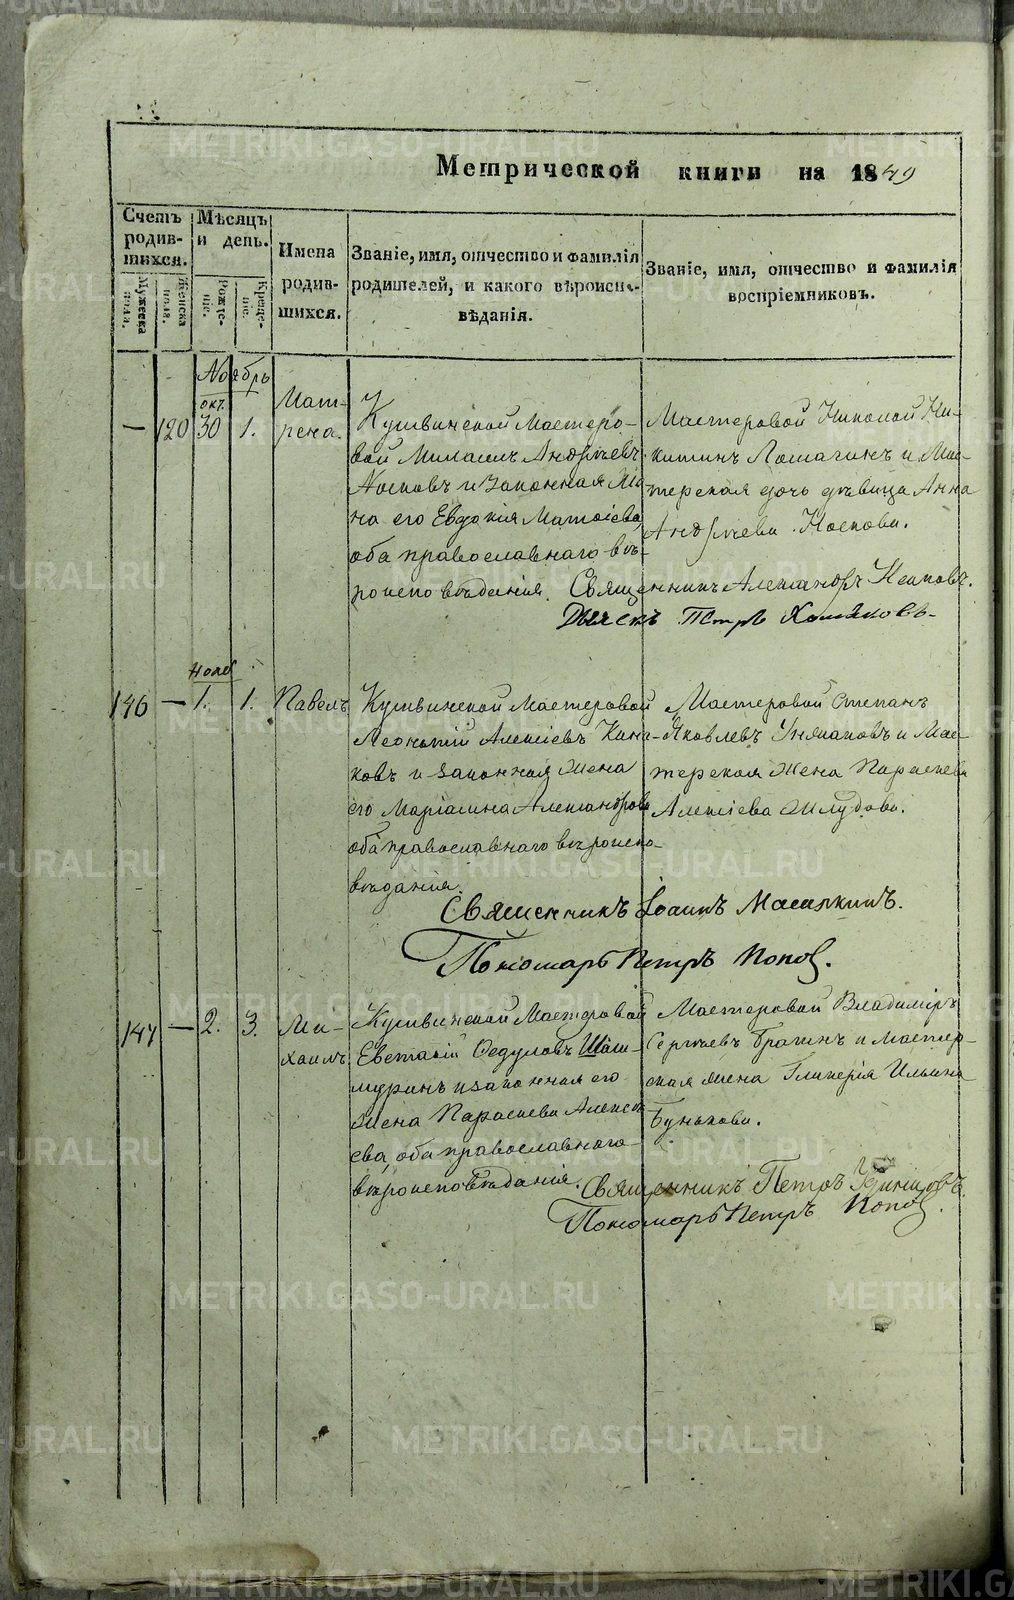 Метрической книги на 1849
Счетъ родив-шихся.
Мужеска пола.
Женска пола.
Мѣсяцъ и день.
Рожде-ніе.
Креще-ніе.
Имена родив-шихся.
Званіе, имя, отчество и фамилія
родителей, и какого вѣроиспо-
вѣданія.
Званіе, имя, отчество и фамилія
воспріемниковъ.
Ноябрь
— 120 окт. 30 1.
Мат-
рена.
Кушвинской Мастеро-
вой Михаилъ Андреевъ
Носковъ и законная же-
на его Евдокия
оба православнаго вѣ-
роисповѣданія.
Мастеровой Николай Ни-
китинъ Ломагинъ и Мас-
терская дочь дѣвица Анна
Андреева Носкова.
Священникъ Александръ
Дьячекъ Петръ Хомяковъ
146 — Нояб 1. 1. Павелъ
Кушвинской Мастеровой
Леонтій Алексіевъ
ковъ и законная жена
его Александрова
оба православнаго вѣроиспо-
вѣданія.
Мастеровой Степанъ
Яковлевъ и Мас-
терская жена Параскева
Алексіева
Священникъ Іоаннъ
Пономарь Петръ Попов.
147 — 2. 3. Ми-
хаилъ
Кушвинской Мастеровой
Евстафій Федуловъ Шаш-
муринъ и законная его
жена Параскева Алексе-
ева, оба православнаго
вѣроисповѣданія.
Мастеровой Владиміръ
Сергѣевъ Брагинъ и мастер-
ская жена Гликерія Ильина
Бунькова.
Священникъ Петръ
Пономарь Петръ Попов.
METRIKI.GASO-URAL.RU